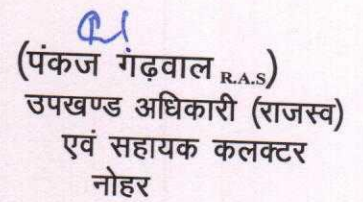 (पंकज गंढ़वाल R.A.S)
उपखण्ड अधिकारी (राजस्व)
एवं सहायक कलक्टर
नोहर